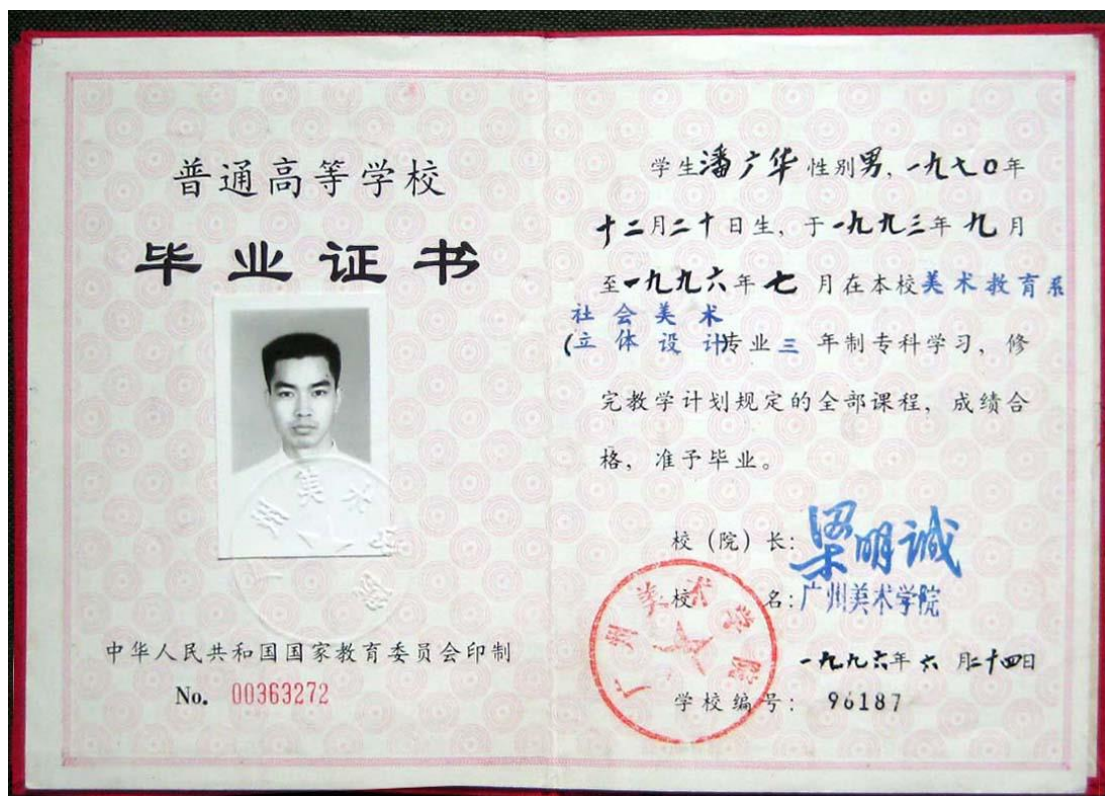 普通高等学校
毕业证书
美术
中华人民共和国国家教育委员会印制
No. 00363272
学生潘广华性别男，一九七〇年
十二月二十日生，于一九九三年九月
至一九九六年七月在本校美术教育系
社会美术
(立体设计专业三年制专科学习，修
完教学计划规定的全部课程，成绩合
格，准予毕业。
校（院）长：梁明诚
校名：广州美术学院
广州美术学院
一九九六年六月二十四日
学校编号：96187